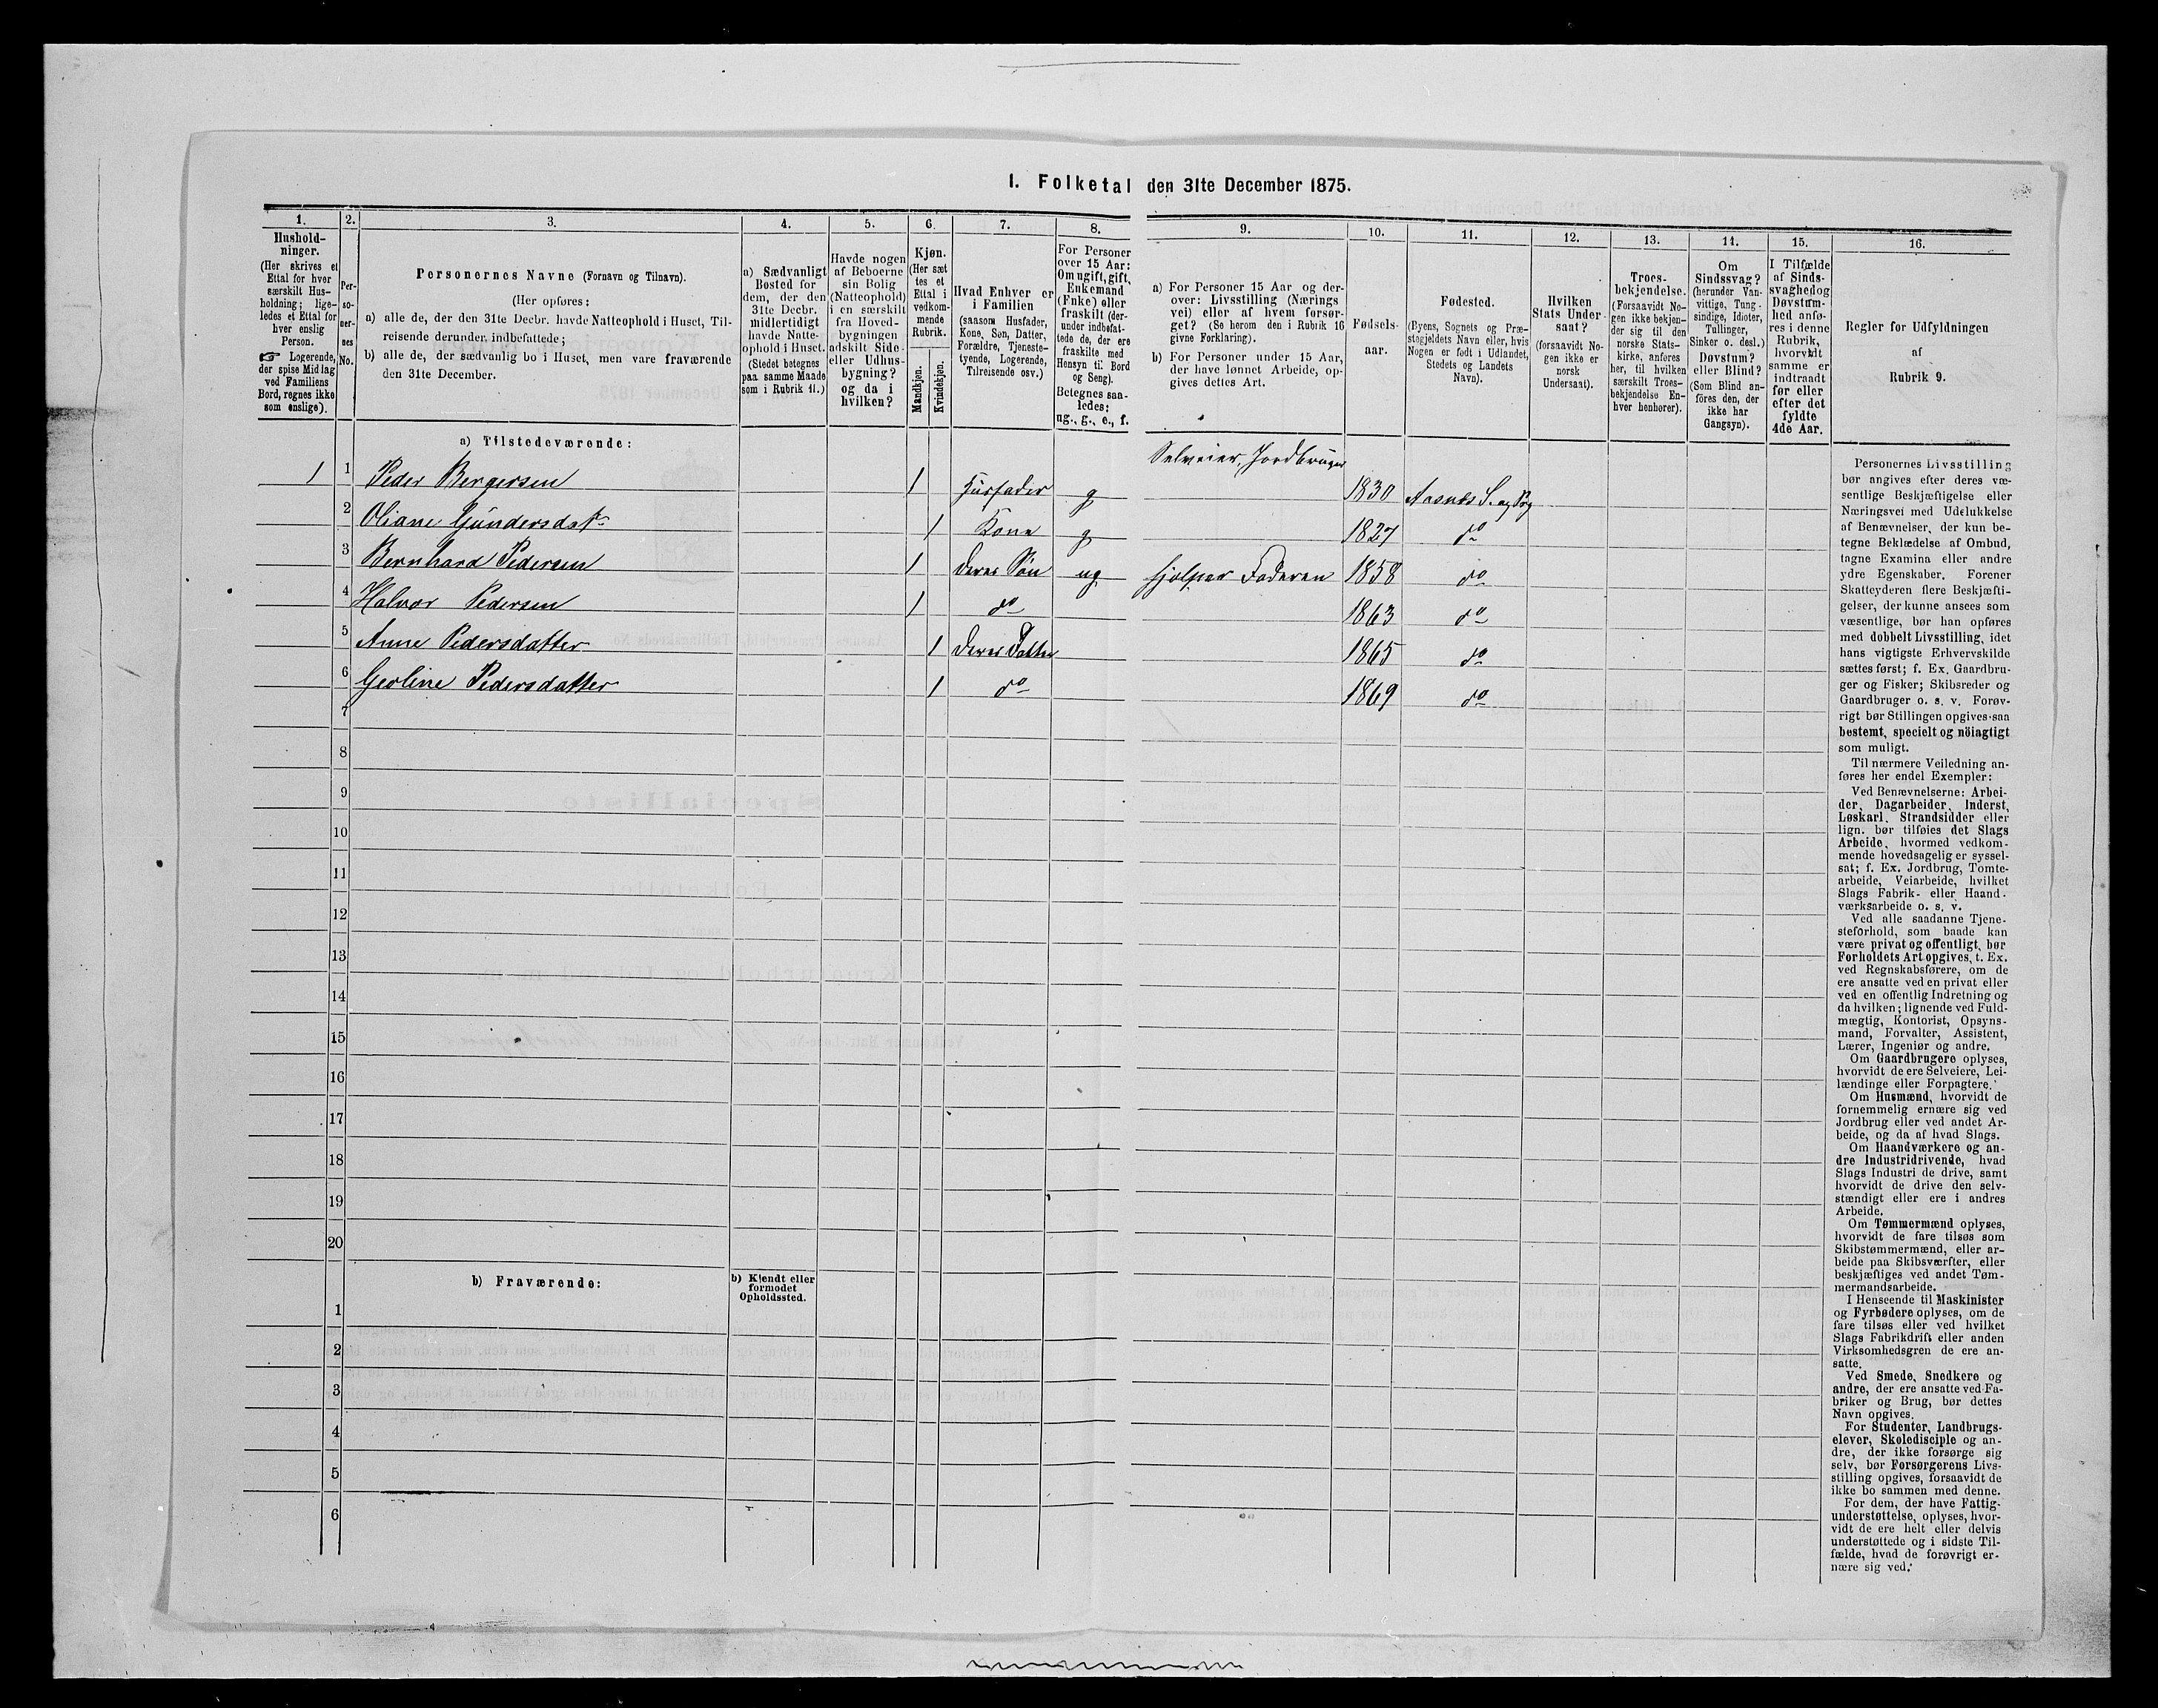 I. Folketal den 31te December 1875.
1.
Hushold-
ninger.
(Her skrives et
Ettal for hver
særskilt Hus-
holdning; lige-
ledes et Ettal for
hver enslig
Person.
☞ Logerende,
der spise Middag
ved Familiens
Bord, regnes ikke
som enslige).
2.
Per-
so-
ner-
nes
No.
3.
Personernes Navne (Fornavn og Tilnavn).
(Her opføres:
a) alle de, der den 31te Decbr. havde Natteophold i Huset, Til-
reisende derunder indbefattede;
b) alle de, der sædvanlig bo i Huset, men vare fraværende
den 31te December.
4.
a) Sædvanligt
Bosted for
dem, der den
31te Decbr.
midlertidigt
havde Natte-
ophold i Huset.
(Stedet betegnes
paa samme Maade
som i Rubrik 11.)
5.
Havde nogen
af Beboerne
sin Bolig
(Natteophold)
i en særskilt
fra Hoved-
bygningen
adskilt Side-
eller Udhus-
bygning?
og da i
hvilken?
6.
Kjøn.
(Her sæt-
tes et
Ettal i
vedkom-
mende
Rubrik.
Mandkjøn.
Kvindekjøn.
7.
Hvad Enhver er
i Familien
(saasom Husfader,
Kone, Søn, Datter,
Forældre, Tjeneste-
tyende, Logerende,
Tilreisende osv.)
8.
For Personer
over 15 Aar:
Om ugift, gift,
Enkemand
(Enke) eller
fraskilt (der-
under indbefat-
tede de, der ere
fraskilte med
Hensyn til Bord
og Seng).
Betegnes saa-
ledes:
ug., g., e., f.
9.
a) For Personer 15 Aar og der-
over: Livsstilling (Nærings
vei) eller af hvem forsør-
get? (Se herom den i Rubrik 16
givne Forklaring).
b) For Personer under 15 Aar,
der have lønnet Arbeide, op-
gives dettes Art.
10.
Fødsels-
aar.
11.
Fødested.
(Byens, Sognets og Præ-
stegjeldets Navn eller, hvis
Nogen er født i Udlandet,
Stedets og Landets
Navn).
12.
Hvilken
Stats Under-
saat?
(forsaavidt No-
gen ikke er
norsk
Undersaat).
13.
Troes-
bekjendelse.
(Forsaavidt No-
gen ikke bekjen-
der sig til den
norske Stats-
kirke, anføres
her, til hvilken
særskilt Troes-
bekjendelse En-
hver henhører).
14.
Om
Sindssvag?
(herunder Van-
vittige, Tung-
sindige, Idioter,
Tullinger,
Sinker o. desl.)
Døvstum?
eller Blind?
(Som Blind an-
føres den, der
ikke har
Gangsyn).
15.
I Tilfælde
af Sinds-
svaghed og
Døvstum-
hed anfø-
res i denne
Rubrik,
hvorvidt
samme er
indtraadt
før eller
efter det
fyldte
4de Aar.
16.
Regler for Udfyldningen
af
Rubrik 9.
a) Tilstedeværende:
Selveier, Jordbruger
1 1 Peder Bergersen 1 Husfader g 1830 Aasnes S. og Prg
2 Oliane Gundersdatr 1 Kone g 1827 do
3 Bernhard Pedersen 1 deres Søn ug hjelper Faderen 1858 do
4 Halvor Pedersen 1 do 1863 do
5 Anne Pedersdatter 1 deres Datter 1865 do
6 Geoline Pedersdatter 1 do 1869 do
7
8
9
10
11
12
13
14
15
16
17
18
19
20
b) Fraværende:
b) Kjendt eller
formodet
Opholdssted.
1
2
3
4
5
6
Personernes Livsstilling
bør angives efter deres væ-
sentlige Beskjæftigelse eller
Næringsvei med Udelukkelse
af Benævnelser, der kun be-
tegne Beklædelse af Ombud,
tagne Examina eller andre
ydre Egenskaber. Forener
Skatteyderen flere Beskjæfti-
gelser, der kunne ansees som
væsentlige, bør han opføres
med dobbelt Livsstilling, idet
hans vigtigste Erhvervskilde
sættes først; f. Ex. Gaardbru-
ger og Fisker; Skibsreder og
Gaardbruger o. s. v. Forøv-
rigt bør Stillingen opgives saa
bestemt, specielt og nöiagtigt
som muligt.
Til nærmere Veiledning an-
føres her endel Exempler:
Ved Benævnelserne: Arbei-
der, Dagarbeider, Inderst,
Løskarl, Strandsidder eller
lign. bør tilføies det Slags
Arbeide, hvormed vedkom-
mende hovedsagelig er syssel-
sat; f. Ex. Jordbrug, Tomte-
arbeide, Veiarbeide, hvilket
Slags Fabrik- eller Haand-
værksarbeide o. s. v.
Ved alle saadanne Tjene-
steforhold, som baade kan
være privat og offentligt, bør
Forholdets Art opgives, t. Ex.
ved Regnskabsførere, om de
ere ansatte ved en privat eller
ved en offentlig Indretning og
da hvilken; lignende ved Fuld-
mægtig, Kontorist, Opsyns-
mand, Forvalter, Assistent,
Lærer, Ingeniør og andre.
Om Gaardbrugere oplyses,
hvorvidt de ere Selveiere, Lei-
lændinge eller Forpagtere.
Om Husmænd, hvorvidt de
fornemmelig ernære sig ved
Jordbrug eller ved andet Ar-
beide, og da af hvad Slags.
Om Haandværkere og an-
dre Industridrivende, hvad
Slags Industri de drive, samt
hvorvidt de drive den selv-
stændigt eller ere i andres
Arbeide.
Om Tømmermænd oplyses,
hvorvidt de fare tilsøs som
Skibstømmermænd, eller ar-
beide paa Skibsværfter, eller
beskjæftiges ved andet Tøm-
mermandsarbeide.
I Henseende til Maskinister
og Fyrbødere oplyses, om de
fare tilsøs eller ved hvilket
Slags Fabrikdrift eller anden
Virksomhedsgren de ere an-
satte.
Ved Smede, Snedkere og
andre, der ere ansatte ved Fa-
briker og Brug, bør dettes
Navn opgives.
For Studenter, Landbrugs-
elever, Skoledisciple og an-
dre, der ikke forsørge sig
selv, bør Forsørgerens Livs-
stilling opgives, forsaavidt de
ikke bo sammen med denne.
For dem, der have Fattig-
understøttelse, oplyses, hvor-
vidt de ere helt eller delvis
understøttede og i sidste Til-
fælde, hvad de forøvrigt er-
nære sig ved.